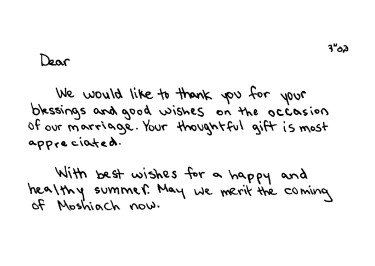 בס"ד
Dear
We would like to thank you for your
blessings and good wishes on the occasion
of our marriage. Your thoughtful gift is most
appreciated.
With best wishes for a happy and
healthy summer. May we merit the coming
of Moshiach now.